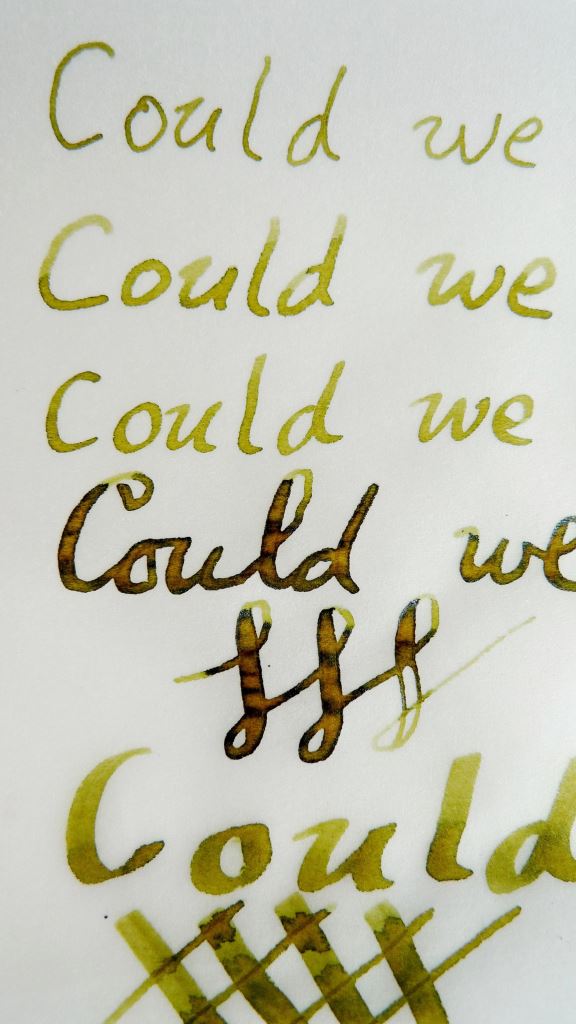 Could we
Could we
Could we
Could we
Could